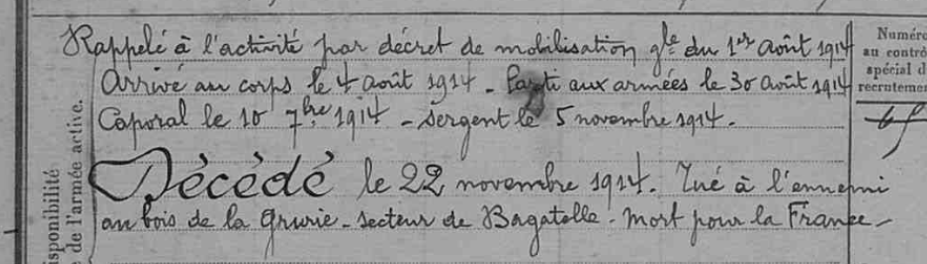 Rappelé à l'activité par décret de mobilisation gle du 1er Août 1914
Arrivé au corps le 4 août 1914 - Parti aux armées le 30 Août 1914
Caporal le 10 7bre 1914 - Sergent le 5 novembre 1914 -
Décédé le 22 novembre 1914. Tué à l'ennemi
au bois de la Grurie - secteur de Bagatelle - Mort pour la France -
isponibilité
e de l'armée active.
Numéro
au contrô
spécial d
recrutemen